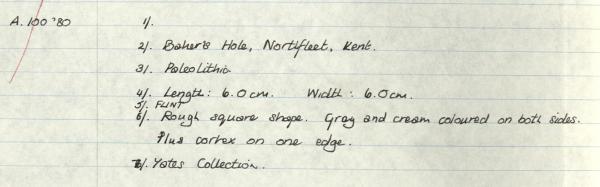 A.100'80 1/.
2/. Baker's Hole, Northfleet, Kent.
3/. Paleolithic
4/. Length: 6.0cm. Width: 6.0cm.
5/. FLINT
6/. Rough square shape. Gray and cream coloured on both sides.
Plus cortex on one edge.
7/. Yates Collection.